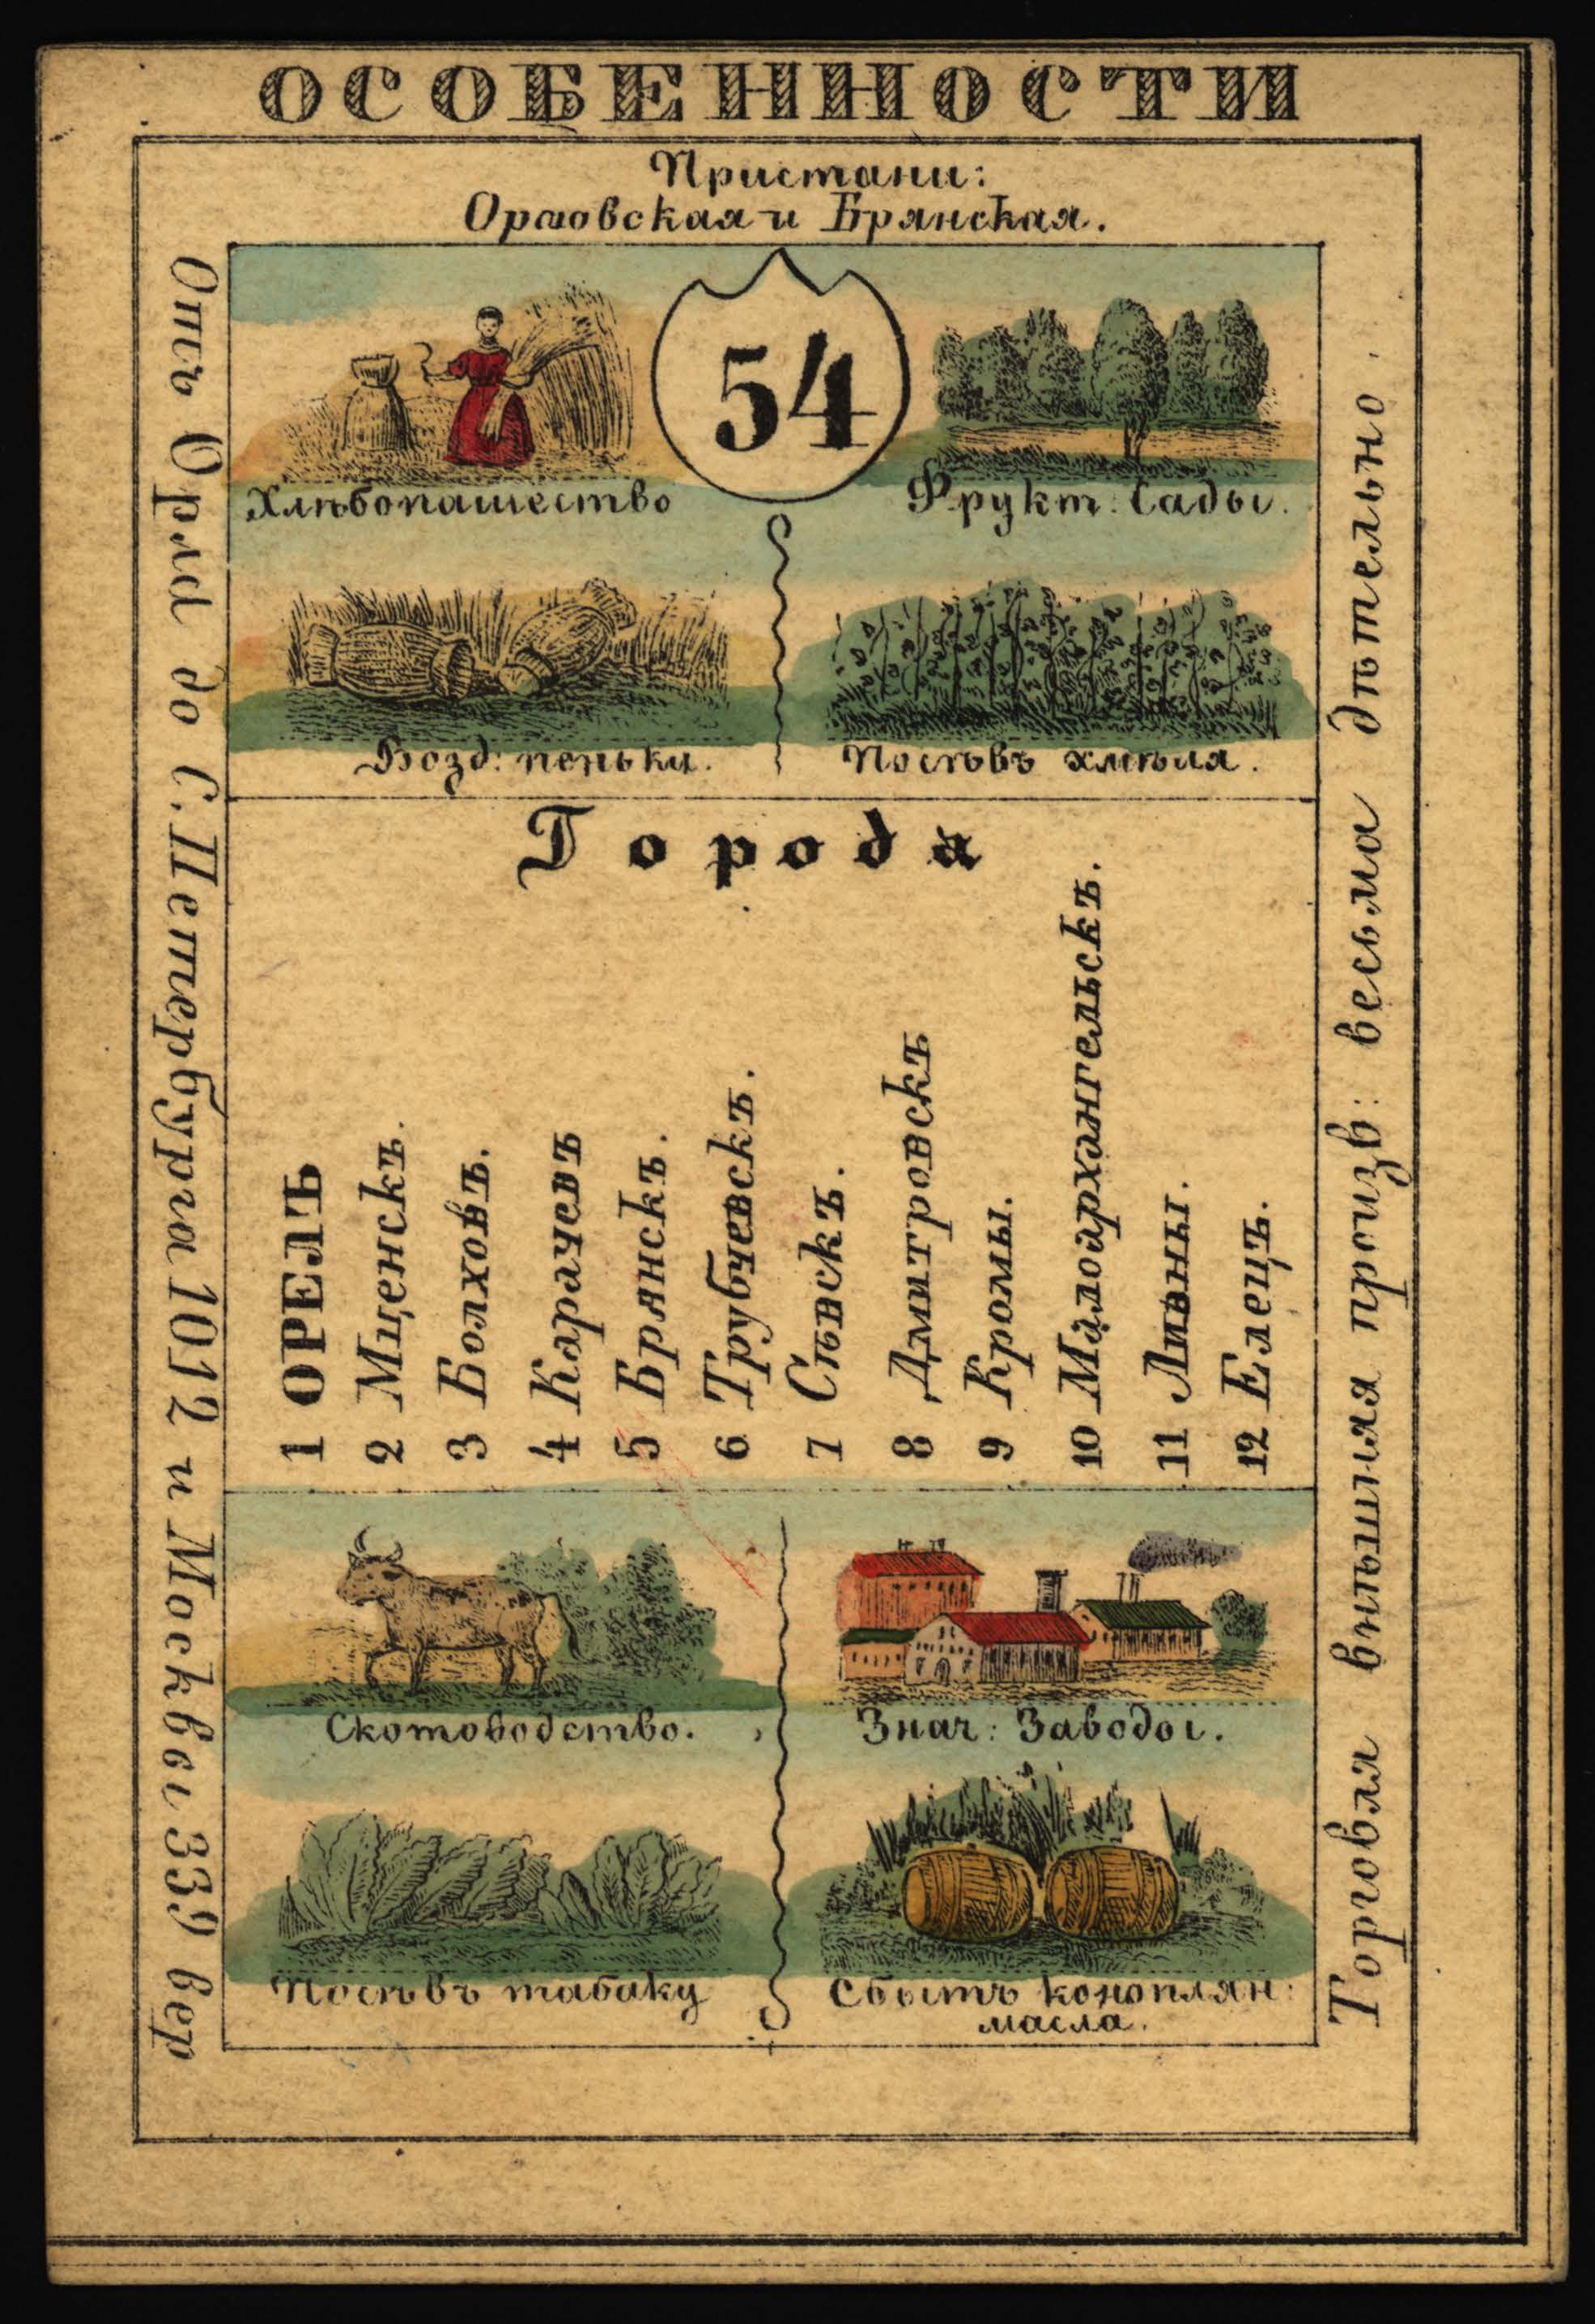 ОСОБЕННОСТИ
Пристани:
Орловская и Брянская.
54
Хлѣбопашество
Фрукт: Сады.
Возд: пеньки.
Посѣвъ хмѣля.
Города
1 ОРЕЛЪ
2 Мценскъ.
3 Болховъ.
4 Карачевъ
5 Брянскъ.
6 Трубчевскъ.
7 Сѣвскъ.
8 Дмитровскъ
9 Кромы.
10 Малоархангельскъ.
11 Ливны.
12 Елецъ.
Скотоводство.
Знач: Заводы.
Посѣвъ табаку
Сбытъ коноплян:
масла.
Отъ Орла до С. Петербурга 1012 и Москвы 339 вер
Торговля внѣшняя произв: весьма дѣтельно.